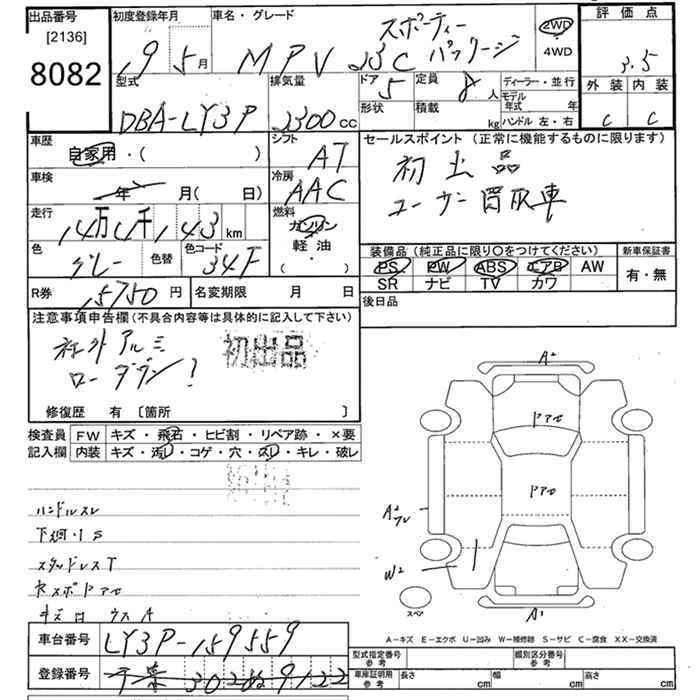 出品番号
[2136]
8082
初度登録年月
19 5月
車名・グレード
MPV 23C スポーティーパッケージ
2WD
4WD
評価点
3.5
外装 内装
C C
型式
DBA-LY3P
排気量
2300cc
ドア 5
形状
定員 8人
積載 kg
ディーラー・並行
モデル年式 年
ハンドル 左・右
車歴
自家用・( )
シフト
AT
セールスポイント(正常に機能するものに限ります)
初出品
ユーザー買取車
車検
年 月( 日)
冷房
AAC
走行
14万4千143km
燃料
ガソリン
軽油・
( )
色
グレー
色替
色コード
34F
装備品(純正品に限り○をつけてください)
新車保証書
PS PW ABS エアB AW
SR ナビ TV カワ
有・無
R券
15750円
名変期限 月 日
後日品
注意事項申告欄(不具合内容等は具体的に記入して下さい)
社外アルミ
ローダウン?
初出品
修復歴 有 [箇所 ]
検査員
記入欄
FW キズ・飛石・ヒビ割・リペア跡・×要
内装 キズ・汚レ・コゲ・穴・スレ・キレ・破レ
ハンドルスレ
下廻・S
スタッドレスT
A2
ドアロ
ドアロ
A2
W2
スペア
A1
A-キズ E-エクボ U-凹み W-補修跡 S-サビ C-腐食 XX-交換済
車台番号
LY3P-159559
登録番号
千葉 302 ぬ 9122
型式指定番号
参考
類別区分番号
参考
車庫証明用
参考
長さ cm
幅 cm
高さ cm